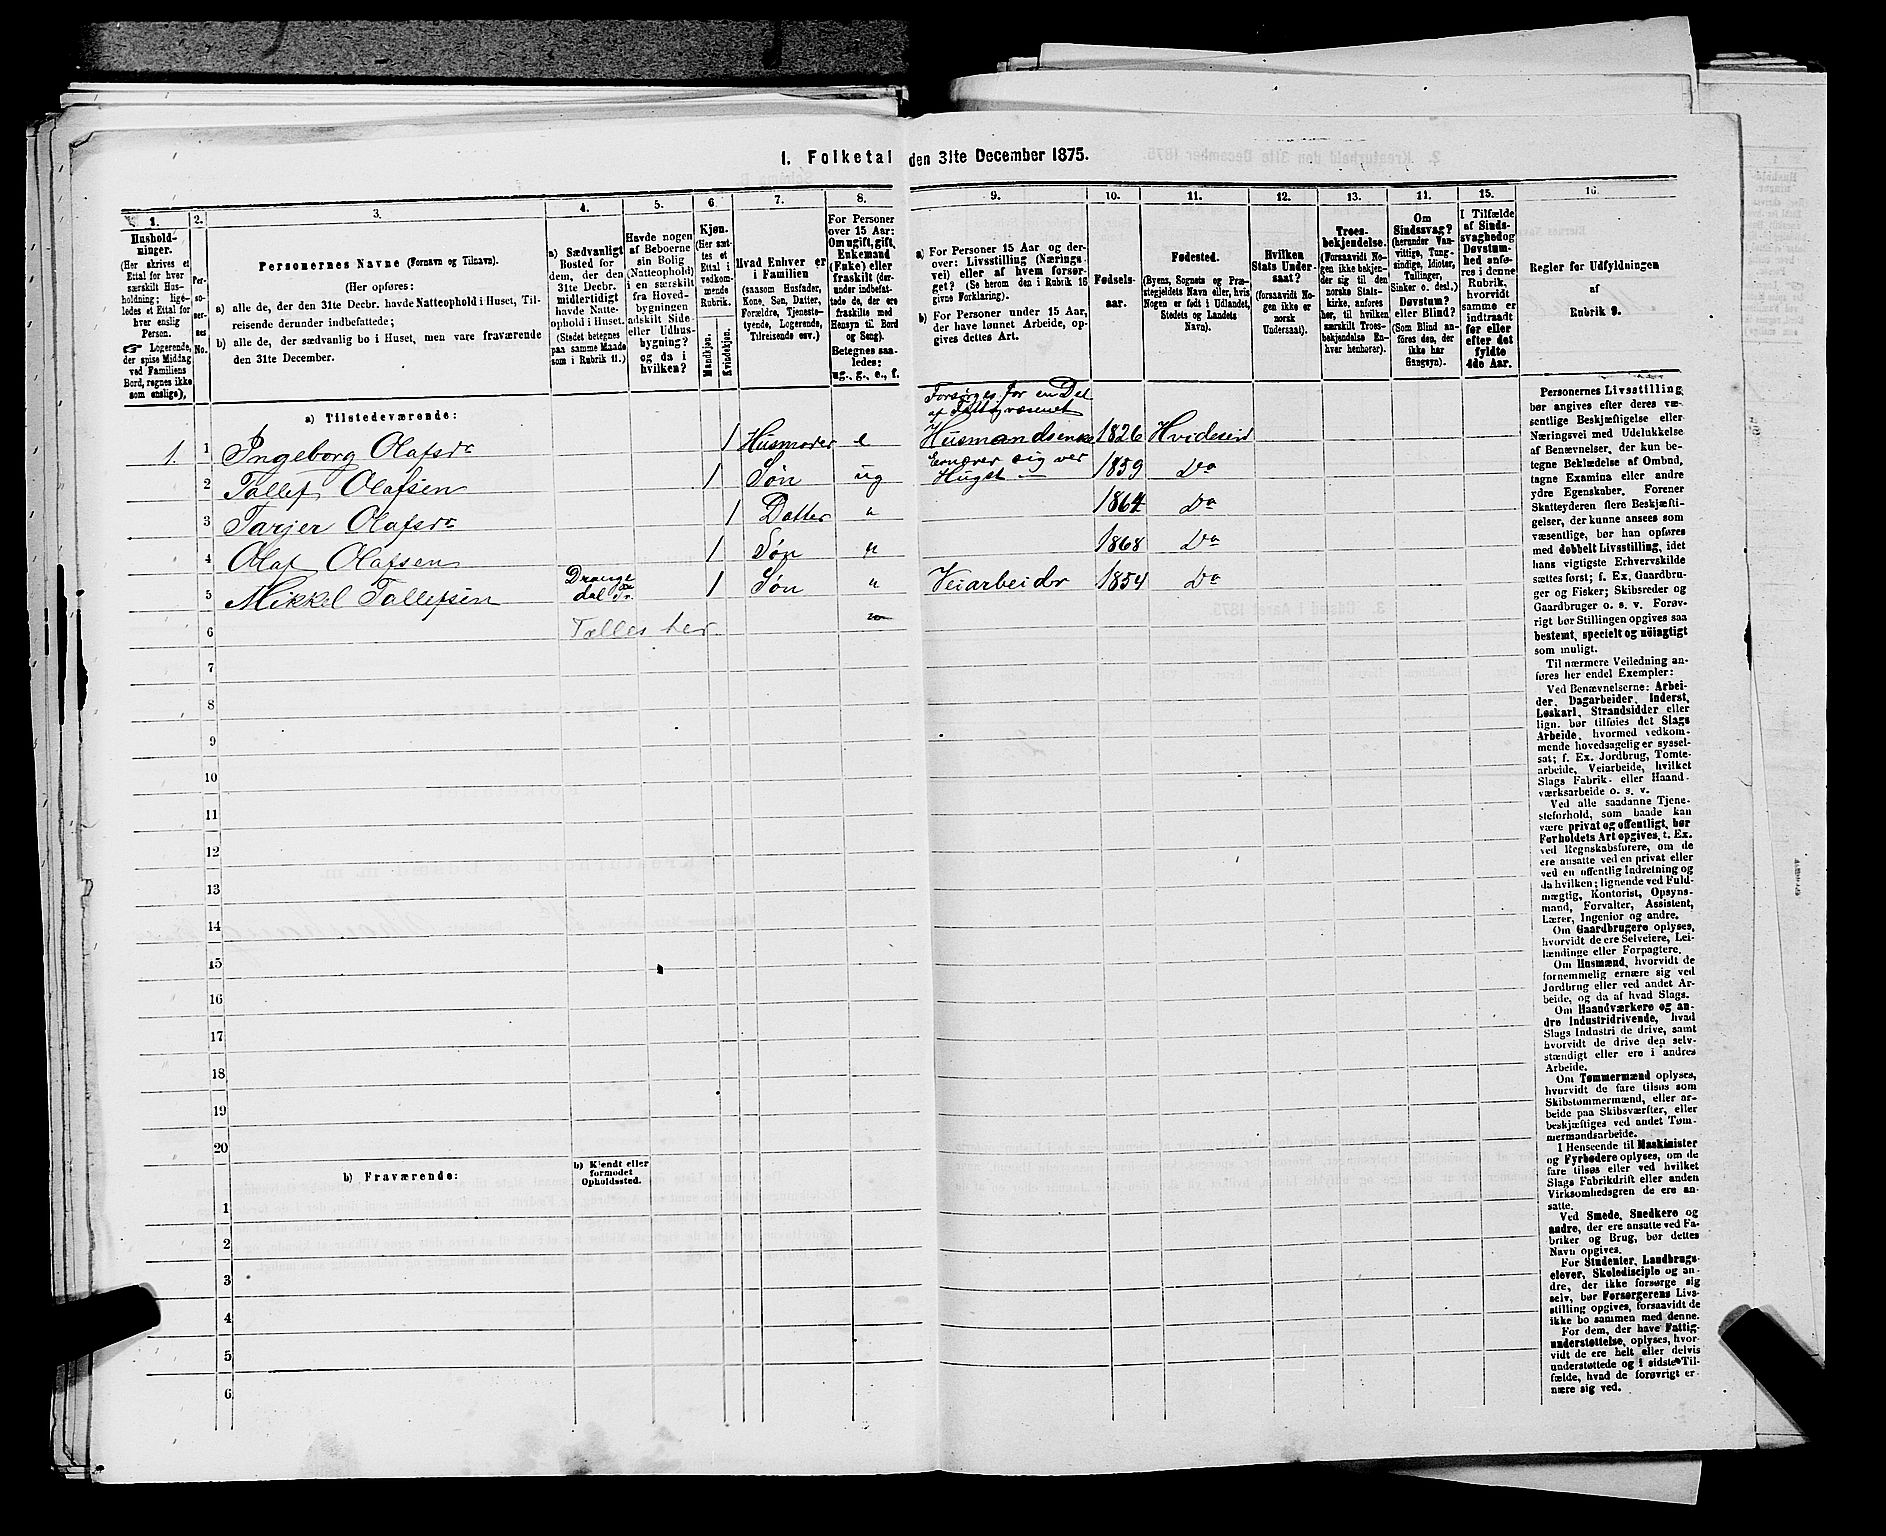 1. Folketal den 31te December 1875.
1. 2. 3. 4. 5. 6. 7. 8. 9. 10. 11. 12. 13. 14. 15. 16.
Hushold-
ninger.
(Her skrives et
Ettal for hver
særskilt Hus-
holdning; lige-
ledes et Ettal for
hver enslig
Person.
☞ Logerende,
der spise Middag
ved Familiens
Bord, regnes ikke
som enslige).
Per-
so-
ner-
nes
No.
Personernes Navne (Fornavn og Tilnavn).
(Her opføres:
a) alle de, der den 31te Decbr. havde Natteophold i Huset, Til-
reisende derunder indbefattede;
b) alle de, der sædvanlig bo i Huset, men vare fraværende
den 31te December.
a) Sædvanligt
Bosted for
dem, der den
31te Decbr.
midlertidigt
havde Natte-
ophold i Huset.
(Stedet betegnes
paa samme Maade
som i Rubrik 11.)
Havde nogen
af Beboerne
sin Bolig
(Natteophold)
i en særskilt
fra Hoved-
bygningen
adskilt Side-
eller Udhus-
bygning?
og da i
hvilken?
Kjøn.
(Her sæt-
tes et
Ettal i
vedkom-
mende
Rubrik.
Mandkjøn.
Kvindekjøn.
Hvad Enhver er
i Familien
(saasom Husfader,
Kone, Søn, Datter,
Forældre, Tjeneste-
tyende, Logerende,
Tilreisende osv.)
For Personer
over 15 Aar:
Om ugift, gift,
Enkemand
(Enke) eller
fraskilt (der-
under indbefat-
tede de, der ere
fraskilte med
Hensyn til Bord
og Seng).
Betegnes saa-
ledes:
ug., g., e., f.
a) For Personer 15 Aar og der-
over: Livsstilling (Nærings-
vei) eller af hvem forsør-
get? (Se herom den i Rubrik 16
givne Forklaring).
b) For Personer under 15 Aar,
der have lønnet Arbeide, op-
gives dettes Art.
Fødsels-
aar.
Fødested.
(Byens, Sognets og Præ-
stegjeldets Navn eller, hvis
Nogen er født i Udlandet,
Stedets og Landets
Navn).
Hvilken
Stats Under-
saat?
(forsaavidt No-
gen ikke er
norsk
Undersaat).
Troes-
bekjendelse.
(Forsaavidt No-
gen ikke bekjen-
der sig til den
norske Stats-
kirke, anføres
her, til hvilken
særskilt Troes-
bekjendelse En-
hver henhører).
Om
Sindssvag?
(herunder Van-
vittige, Tung-
sindige, Idioter,
Tullinger,
Sinker o. desl.)
Døvstum?
eller Blind?
(Som Blind an-
føres den, der
ikke har
Gangsyn).
I Tilfælde
af Sinds-
svaghed og
Døvstum-
hed anfø-
res i denne
Rubrik,
hvorvidt
samme er
indtraadt
før eller
efter det
fyldte
4de Aar.
Regler for Udfyldningen
af
Rubrik 9.
a) Tilstedeværende:
Forsørges for en Del
af Fattigvæsenet
1. 1 Ingeborg Olafsdr 1 Husmoder e Husmandsenke 1826 Hvideseid
Ernærer sig ved
2 Tollef Olafsen 1 Søn ug Hugst 1859 Do
3 Tarjer Olafsdr 1 Datter " 1864 Do
4 Olaf Olafsen 1 Søn " 1868 Do
5 Mikkel Tollefsen Drange
dal 1 Søn " Veiarbeider 1854 Do
6 Tælles her
7
8
9
10
11
12
13
14
15
16
17
18
19
20
b) Fraværende:
b) Kjendt eller
formodet
Opholdssted.
1
2
3
4
5
6
Personernes Livsstilling
bør angives efter deres væ-
sentlige Beskjæftigelse eller
Næringsvei med Udelukkelse
af Benævnelser, der kun be-
tegne Beklædelse af Ombud,
tagne Examina eller andre
ydre Egenskaber. Forener
Skatteyderen flere Beskjæfti-
gelser, der kunne ansees som
væsentlige, bør han opføres
med dobbelt Livsstilling, idet
hans vigtigste Erhvervskilde
sættes først; f. Ex. Gaardbru-
ger og Fisker; Skibsreder og
Gaardbruger o. s. v. Forøv-
rigt bør Stillingen opgives saa
bestemt, specielt og nöiagtigt
som muligt.
Til nærmere Veiledning an-
føres her endel Exempler:
Ved Benævnelserne: Arbei-
der, Dagarbeider, Inderst,
Løskarl, Strandsidder eller
lign. bør tilføies det Slags
Arbeide, hvormed vedkom-
mende hovedsagelig er syssel-
sat; f. Ex. Jordbrug, Tomte-
arbeide, Veiarbeide, hvilket
Slags Fabrik- eller Haand-
værksarbeide o. s. v.
Ved alle saadanne Tjene-
steforhold, som baade kan
være privat og offentligt, bør
Forholdets Art opgives, t. Ex.
ved Regnskabsførere, om de
ere ansatte ved en privat eller
ved en offentlig Indretning og
da hvilken; lignende ved Fuld-
mægtig, Kontorist, Opsyns-
mand, Forvalter, Assistent,
Lærer, Ingeniør og andre.
Om Gaardbrugere oplyses,
hvorvidt de ere Selveiere, Lei-
lændinge eller Forpagtere.
Om Husmænd, hvorvidt de
fornemmelig ernære sig ved
Jordbrug eller ved andet Ar-
beide, og da af hvad Slags.
Om Haandværkere og an-
dre Industridrivende, hvad
Slags Industri de drive, samt
hvorvidt de drive den selv-
stændigt eller ere i andres
Arbeide.
Om Tømmermænd oplyses,
hvorvidt de fare tilsøs som
Skibstømmermænd, eller ar-
beide paa Skibsværfter, eller
beskjæftiges ved andet Tøm-
mermandsarbeide.
I Henseende til Maskinister
og Fyrbødere oplyses, om de
fare tilsøs eller ved hvilket
Slags Fabrikdrift eller anden
Virksomhedsgren de ere an-
satte.
Ved Smede, Snedkere og
andre, der ere ansatte ved Fa-
briker og Brug, bør dettes
Navn opgives.
For Studenter, Landbrugs-
elever, Skoledisciple og an-
dre, der ikke forsørge sig
selv, bør Forsørgerens Livs-
stilling opgives, forsaavidt de
ikke bo sammen med denne.
For dem, der have Fattig-
understøttelse, oplyses, hvor-
vidt de ere helt eller delvis
understøttede og i sidste Til-
fælde, hvad de forøvrigt er-
nære sig ved.